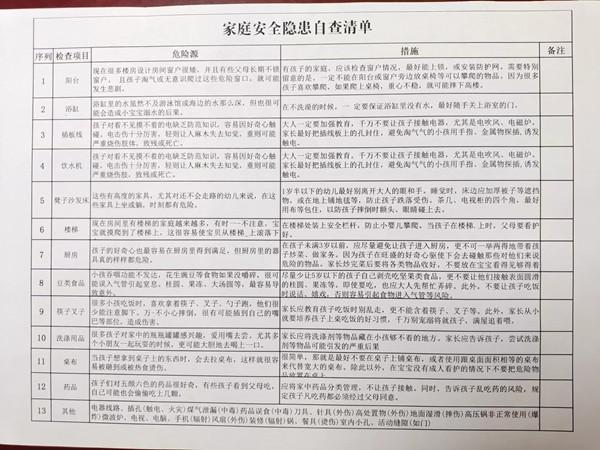 家庭安全隐患自查清单
序列 检查项目 危险源 措施 备注
1 阳台
现在很多楼房设计房间窗户很矮，并且有些父母长期不锁
窗户，且孩子淘气或无意识爬过这些危险窗口，就可能
发生悲剧。
有孩子的家庭，应该检查窗户情况，最好能上锁，或安装防护网，需要特别
留意的是，一定不能在阳台或窗户旁边放桌椅等可以攀爬的物品，因为很多
孩子喜欢攀爬，如果爬上桌椅，重心不稳，就可能摔下高楼。
2 浴缸
浴缸里的水虽然不及游泳馆或海边的水那么深，但也很可
能会造成小宝宝溺水的后果。
在不洗澡的时候，一定要保证浴缸里没有水，最好随手关上浴室的门。
3 插板线
孩子对看不见摸不着的电缺乏防范知识，容易因好奇心触
碰，电击伤十分厉害，轻则让人麻木失去知觉，重则可能
严重烧伤肢体、致残或死亡。
大人一定要加强教育，千万不要让孩子接触电器，尤其是电吹风、电磁炉，
家长最好把插线板上的孔封住，避免淘气气的小孩用手指、金属物探插，诱发
触电。
4 饮水机
孩子对看不见摸不着的电缺乏防范知识，容易因好奇心触
碰，电击伤十分厉害，轻则让人麻木失去知觉，重则可能
严重烧伤肢体、致残或死亡。
大人一定要加强教育，千万不要让孩子接触电器，尤其是电吹风、电磁炉，
家长最好把插线板上的孔封住，避免淘气气的小孩用手指、金属物探插，诱发
触电。
5 凳子沙发床
这些有高度的家具，尤其对还不会走路的幼儿来说，在这
些家具上坐或躺，时刻都有危险。
1岁半以下的幼儿最好别离开大人的眼和手。睡觉时，床边应加厚被子等遮挡
物，或在地上铺地毯等，防止孩子跌落受伤，茶几、电视柜的四个角，最好
用布等包住，以防孩子摔倒时额头、眼睛碰上去。
6 楼梯
现在房间里有楼梯的家庭越来越多，有时一不注意，宝
宝就摸爬到了楼梯上，这很容易使宝贝从楼梯上滚落下
在楼梯处装上安全栏杆，防止小婴儿攀爬，当孩子在楼梯上时，父母要看护
好。
7 厨房
孩子的好奇心也最容易在厨房里得到满足，但厨房里的器
具真的样样都危险。
在孩子未满3岁以前，应尽量避免让孩子进入厨房，更不可一举两得地带着孩
子炒菜、做家务，因为孩子在旺盛的好奇心驱使下会去碰触那些对他们来说
危险的物品，家长炒完菜后要将各类物品收好，不要放在宝宝看得见够得着
8 豆类食品
小孩吞咽功能不发达，花生豌豆等食物如果没嚼碎，很可
能误入气管引起窒息，桂圆、果冻、大汤圆等，最容易导
致意外。
尽量少让5岁以下的孩子自己剥壳吃坚果类食品，更不要让他们接触表面圆滑
的桂圆、果冻等，即使要吃，也应大人先帮忙弄碎。此外，不要让孩子吃饭
时说话、嬉戏，否则容易引起食物进入气管等风险。
9 筷子叉子
很多小孩吃饭时，喜欢拿着筷子、叉子、勺子跑，他们很
少能注意脚下，万一不小心摔倒，很有可能插到自己的嘴
巴等部位，造成伤害。
家长应教育孩子吃饭时别乱走，更不能含着筷子、叉子等。此外，家长从小
就要培养孩子上桌吃饭的好习惯，千万别宠溺将就孩子，满屋追着喂。
10 洗涤用品
很多孩子对家中的瓶瓶罐罐感兴趣，爱用嘴去尝，尤其多
个小朋友一起玩耍的时候，更可能大胆地去喝上一口。
家长应将洗涤剂等物品藏在小孩够不着的地方。家长应告诉孩子，尝试洗涤
剂等物品可能引发的严重后果
11 桌布
当孩子想拿到桌子上的东西时，会去拉桌布，这样就很容
易被砸到或被热食烫伤。
很简单，那就是最好不要在桌子上铺桌布，或者使用跟桌面面积相等的桌布
来代替宽大的桌布，除此以外，在宝宝没有成人看护的情况下不要把危险物
12 药品
孩子们对五颜六色的药品很好奇，有些孩子看到父母吃，
自己可能也会偷偷吃上几颗。
应将家中药品分类管理，不让孩子接触。同时，告诉孩子乱吃药的风险，规
定孩子凡吃药都必须经过父母同意。
13 其他
电器线路、插孔(触电、火灾)煤气泄漏(中毒)药品误食(中毒)刀具、针具(外伤)高处置物(外伤)地面湿滑(摔伤)高压锅非正常使用(爆
炸)微波炉、电视、电脑、手机(辐射)风扇(外伤)装修(辐射)锅、餐具(烫伤)室内小孔、活动缝隙(如门)